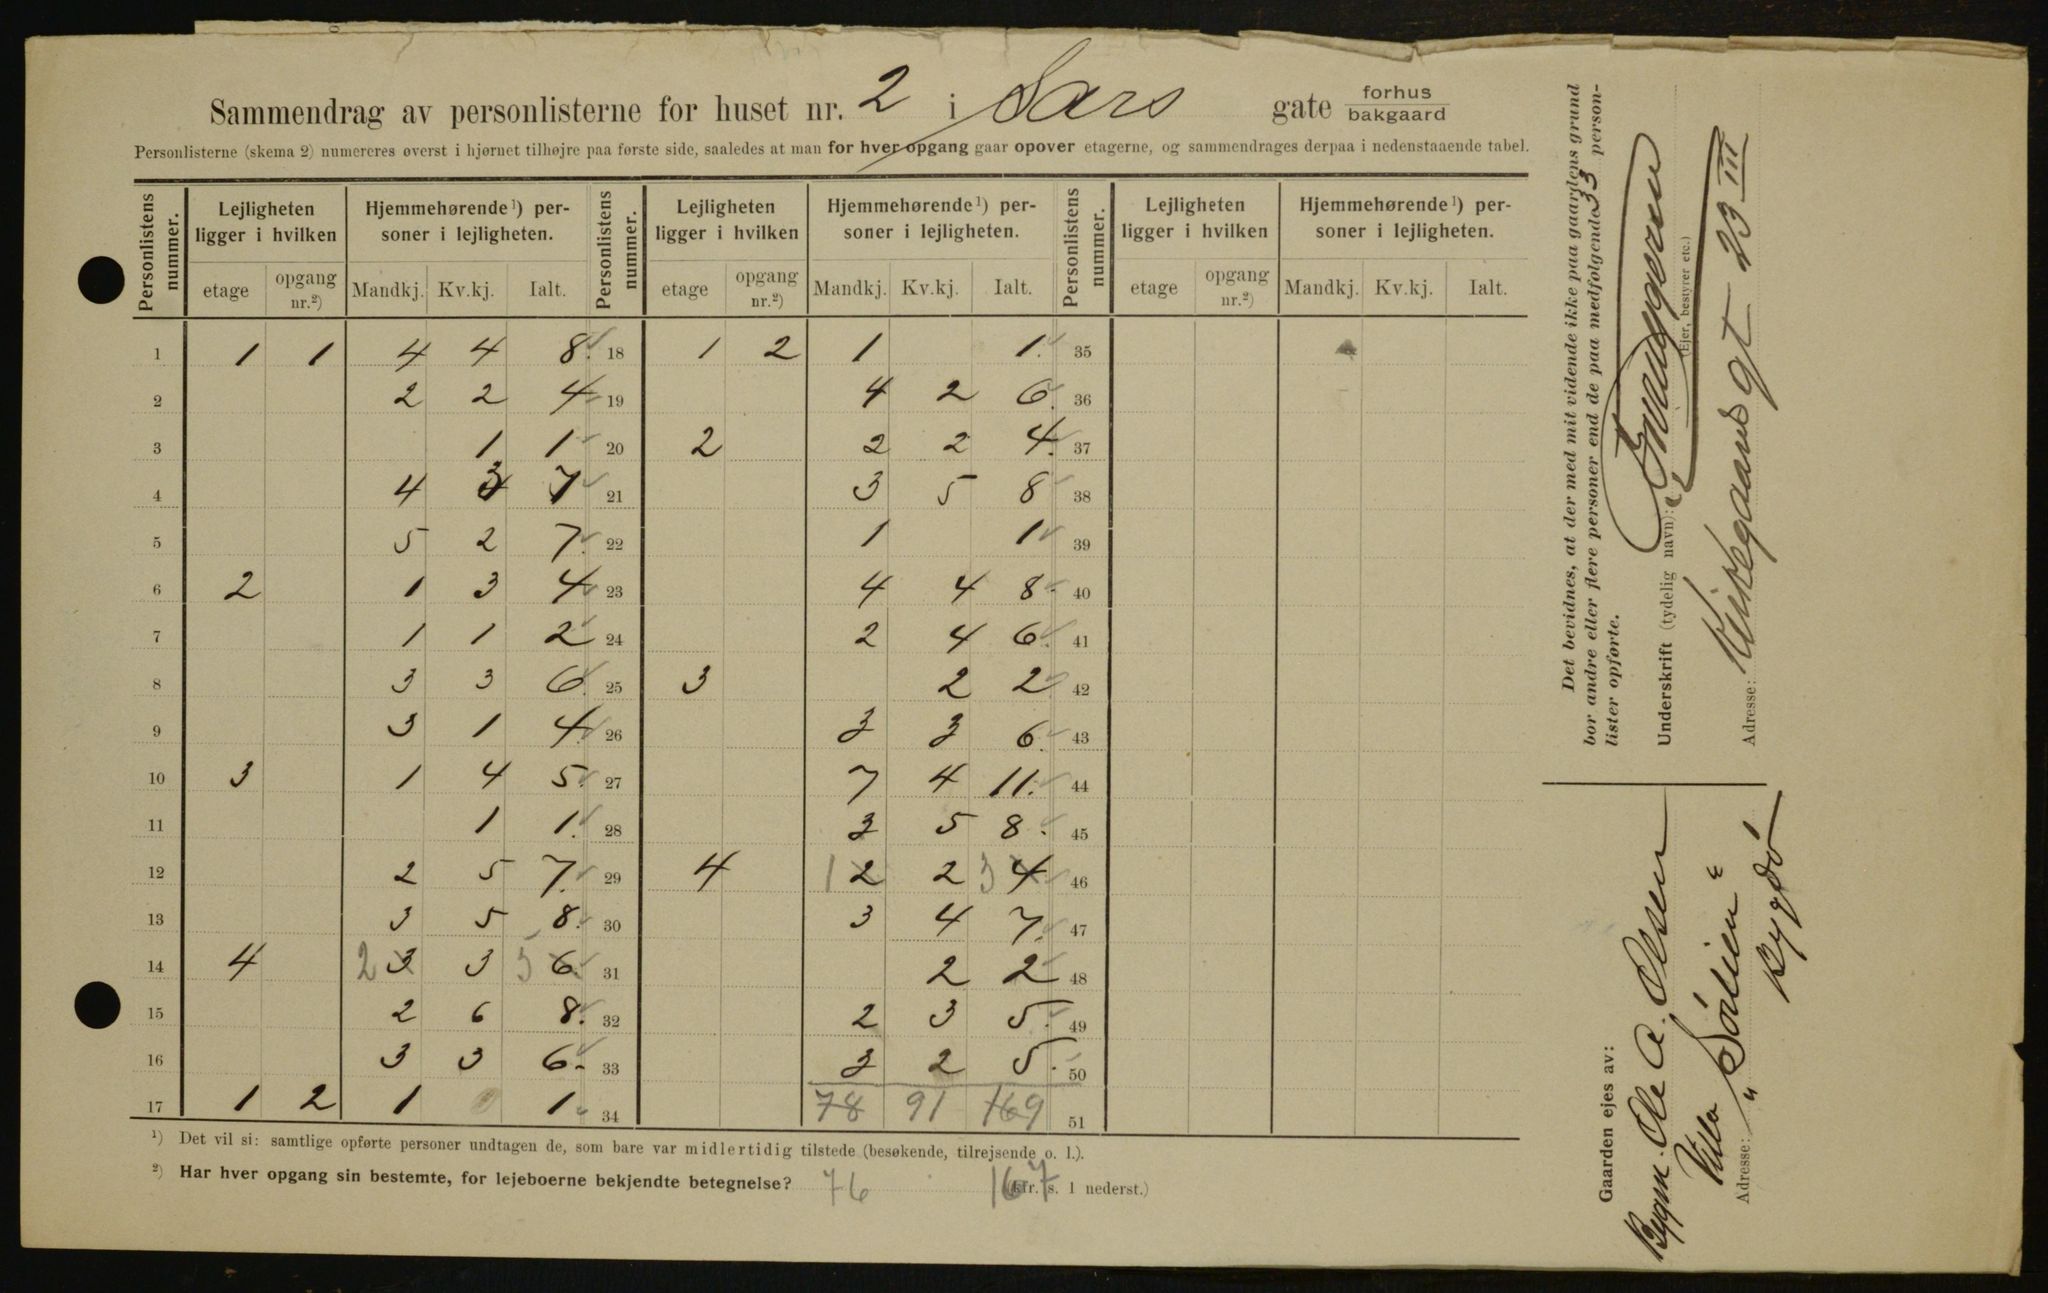 Sammendrag av personlisterne for huset nr. 2 i Sars gate forhus bakgaard
Personlisterne (skema 2) numereres øverst i hjørnet tilhøjre paa første side, saaledes at man for hver opgang gaar opover etagerne, og sammendrages derpaa i nedenstaaende tabel.
Personlistens nummer. Lejligheten ligger i hvilken Hjemmehørende¹) personer i lejligheten. Personlistens nummer. Lejligheten ligger i hvilken Hjemmehørende¹) personer i lejligheten. Personlistens nummer. Lejligheten ligger i hvilken Hjemmehørende¹) personer i lejligheten.
etage opgang nr.²) Mandkj. Kv.kj. Ialt. etage opgang nr.²) Mandkj. Kv.kj. Ialt. etage opgang nr.²) Mandkj. Kv.kj. Ialt.
1 1 1 4 4 8. 18 1 2 1 1. 35
2 2 2 4 19 4 2 6. 36
3 1 1 20 2 2 2 4. 37
4 4 3 7 21 3 5 8 38
5 5 2 7. 22 1 1 39
6 2 1 3 4 23 4 4 8. 40
7 1 1 2 24 2 4 6. 41
8 3 3 6. 25 3 2 2 42
9 3 1 4. 26 3 3 6. 43
10 3 1 4 5. 27 7 4 11. 44
11 1 1. 28 3 5 8. 45
12 2 5 7. 29 4 1 2 2 3 4 46
13 3 5 8. 30 3 4 7. 47
14 4 2 3 3 5 6. 31 2 2 48
15 2 6 8. 32 2 3 5. 49
16 3 3 6. 33 3 2 5. 50
17 1 2 1 1. 34 78 91 169 51
¹) Det vil si: samtlige opførte personer undtagen de, som bare var midlertidig tilstede (besøkende, tilrejsende o. l.).
²) Har hver opgang sin bestemte, for lejeboerne bekjendte betegnelse? (kfr. s. 1 nederst.)
76 167
Det bevidnes, at der med mit vidende ikke paa gaardens grund
bor andre eller flere personer end de paa medfølgende 33 person-
lister opførte.
Underskrift (tydelig navn):
(Ejer, bestyrer etc.)
Adresse: Kirkegaardsgt 23 III
Gaarden ejes av:
Bygm. Ole A. Olsen
Villa "Sólien"
Adresse: Bygdó